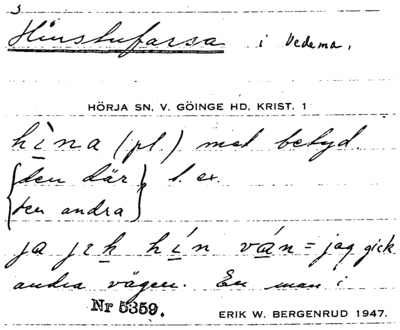 3
Hinstufarsa i Vedema.
HÖRJA SN, V. GÖINGE HD, KRIST. 1
hina (pl.) med betyd.
{den där} t. ex.
{den andra}
ja jik hín ván = jag gick
andra vägen. En man i
Nr 5359.
ERIK W. BERGENRUD 1947.